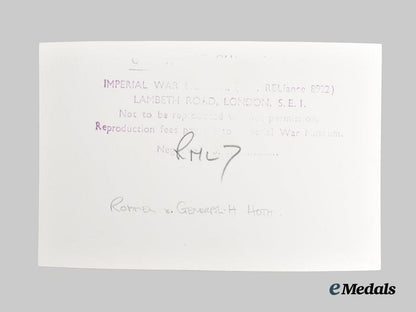 IMPERIAL WAR RELiance 8922)
LAMBETH ROAD, LONDON, S. E. 1.
Not to be reproduced without permission.
Reproduction fees to War Museum.
Neg RML 7
ROMMEL & GENERAL-H HOTH.
eMedals